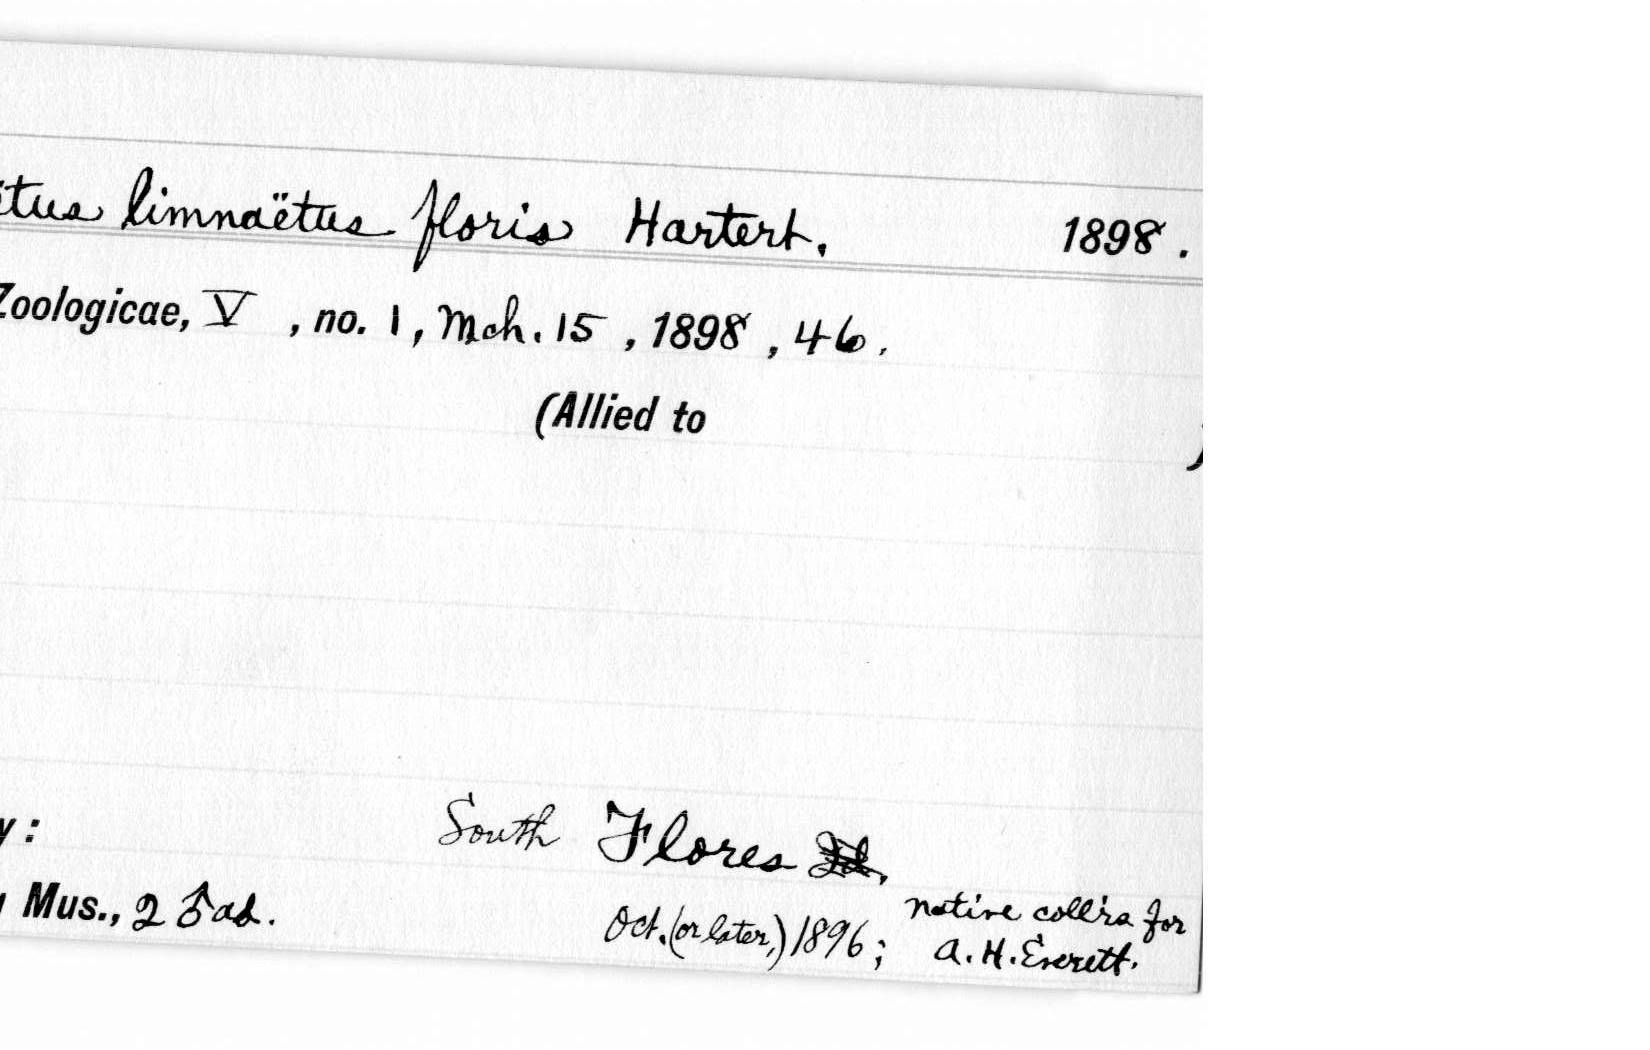 ëtus limnaëtus floris Hartert. 1898.
Zoologicae, V, no. 1, Mch. 15, 1898, 46.
(Allied to )
y: South Flores
Mus., 2 ♂ ad. Oct. (or later,) 1896; native coll'rs for
A. H. Everett.